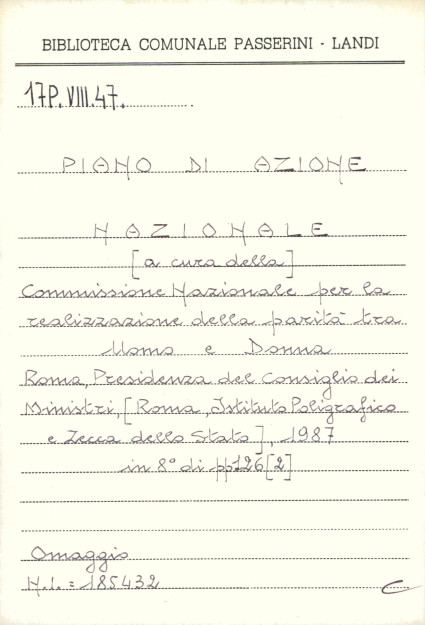 BIBLIOTECA COMUNALE PASSERINI - LANDI
17P.VIII.47.
PIANO DI AZIONE
NAZIONALE
[a cura della]
Commissione Nazionale per la
realizzazione della parità tra
Uomo e Donna
Roma, Presidenza del Consiglio dei
Ministri, [Roma, Istituto Poligrafico
e Zecca dello Stato], 1987
in 8° di pp126[2]
Omaggio
N.i. = 185432
C